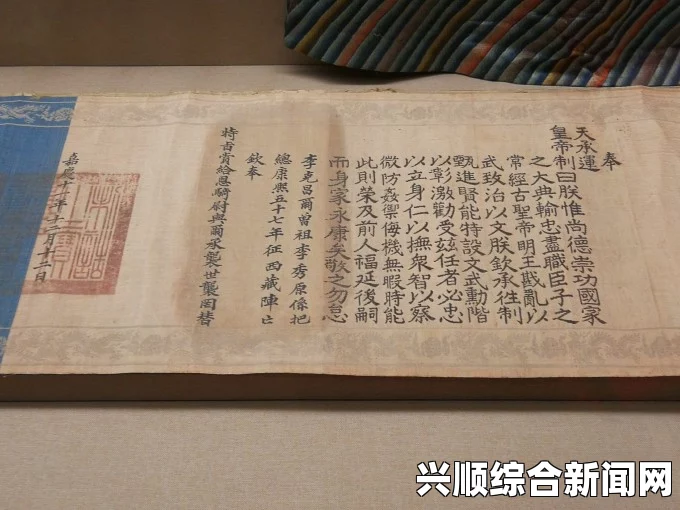 奉
天承運
皇帝制曰朕惟尚德崇功國家
之大典輸忠盡職臣子之
常經古聖帝明王戡亂以
武致治以文朕欽承往制
甄進賢能特設文武勳階
以彰激勸受茲任者必忠
以立身仁以撫衆智以察
微防姦禦侮機無暇時能
此則榮及前人福延後嗣
而身家永康矣敬之勿怠
李克昌爾曾祖李秀原係把
總康熙五十七年征西藏陣亡
欽奉
特旨賞給恩騎尉與爾承襲世襲罔替
嘉慶十年十二月十二日
兴顺综合新闻网